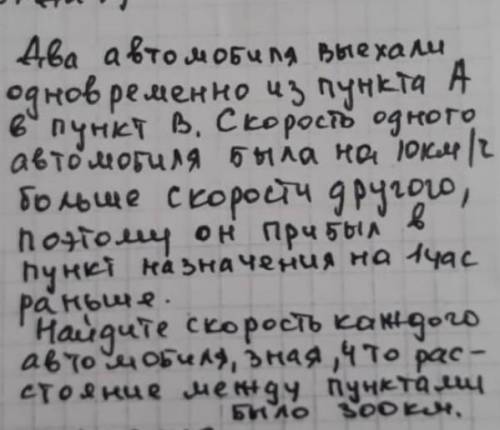 Два автомобиля выехали
одновременно из пункта А
в пункт В. Скорость одного
автомобиля была на 10км/ч
больше скорости другого,
поэтому он прибыл в
пункт назначения на 1час
раньше.
Найдите скорость каждого
автомобиля, зная, что рас-
стояние между пунктами
было 300км.